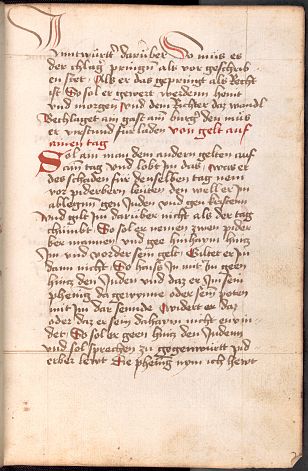 antwürtt darüber So mües es
der chlag pringen als vor geschrib
en stet Als er das gepringt als Recht
ist So sol er gewert werden heint
vnd morgen vnd dem Richter daz wandl
Bechlaget am gast am burger den müs
er vorstund fur laden von gelt auf
ainen tag
Sol ain man dem andern gelten auf
ain tag vnd lobt jm das was er
des schaden für denselben tag nem
vor piderben leuten den well er jm
ablegen gen Juden vnd gen kristenn
vnd gilt jm darüber nicht als der tag
chümbt So sol er nemen zwen pider
ber mannen vnd gee hinhaim hintz
Jm vnd vorder sein gelt Giltet er jm
dann nicht So haiss Jn mit jm geen
hintz den Juden vnd daz er Jm sein
phening da gewynne oder sein poten
mit Jm dar sennde widert er daz
oder daz er sein dahaim nicht envin
det So sol er geen hintz den Juden
vnd sol sprechen zu gegenwürtt pid
erber lewt Die phening nym ich hewt